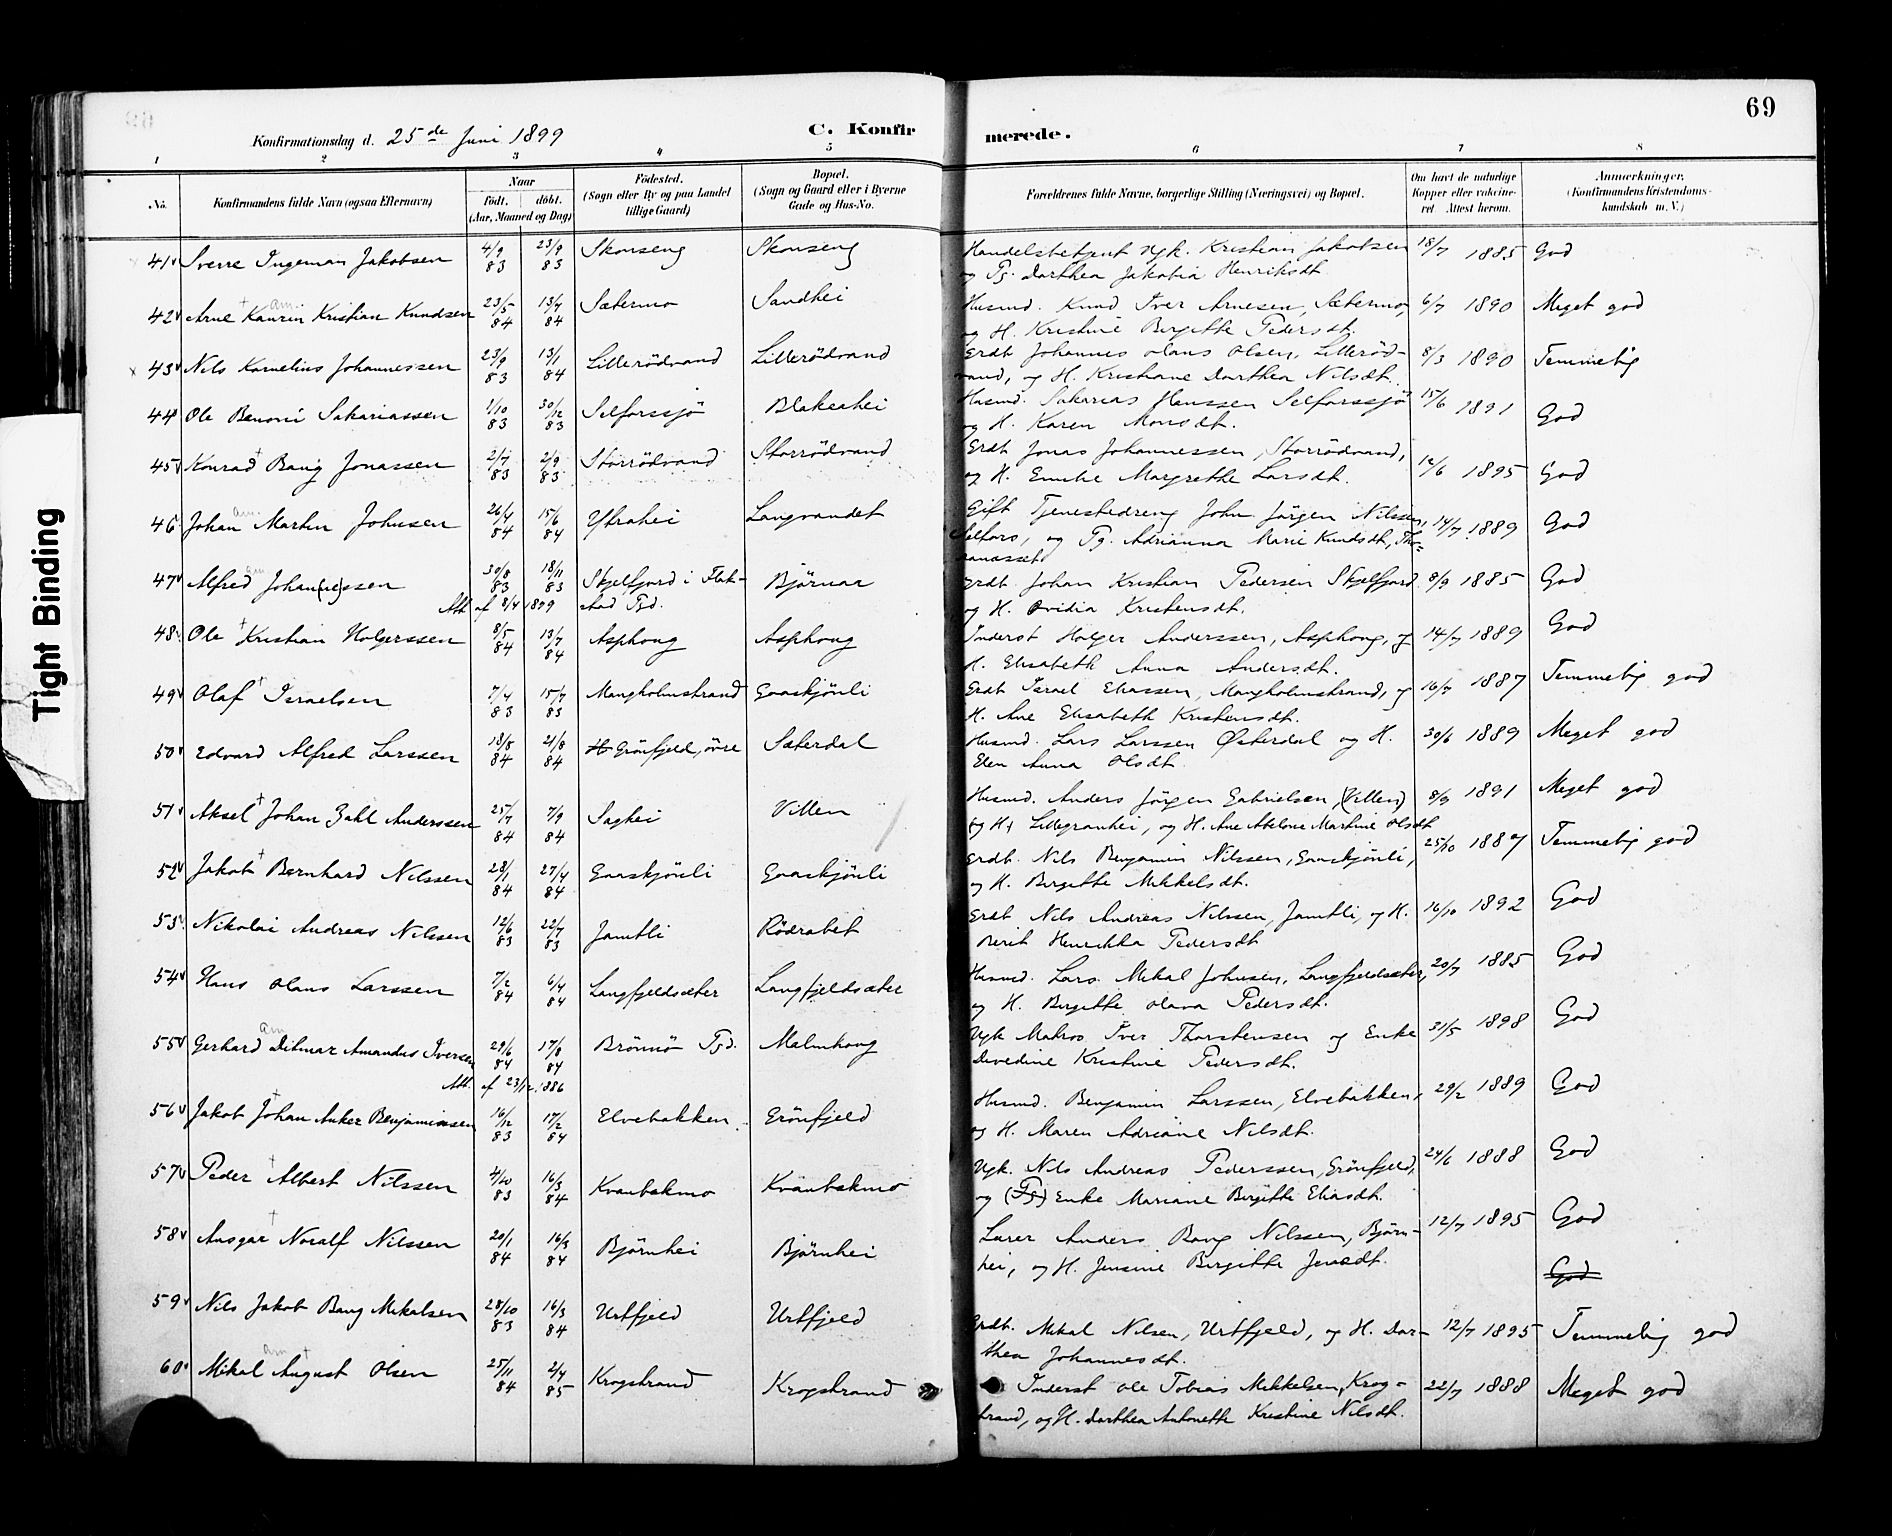 69
Konfirmationsdag d. 25de Juni 1899
C. Konfirmerede.
1 2 3 4 5 6 7 8
No.
Konfirmandens fulde Navn (ogsaa Efternavn)
Naar
født. døbt.
(Aar, Maaned og Dag)
Fødested.
(Sogn eller By og paa Landet
tillige Gaard)
Bopæl.
(Sogn og Gaard eller i Byerne
Gade og Hus-No.
Forældrenes fulde Navne, borgerlige Stilling (Næringsvei) og Bopæl.
Om havt de naturlige
Kopper eller vaccine-
ret. Attest herom.
Anmærkninger.
(Konfirmandens Kristendoms-
kundskab m. V.)
41 Sverre Ingeman Jakobsen 4/9 83 23/9 83 Skonseng Skonseng Handelsbetjent Ugk. Kristian Jakobsen 18/7 1885 God
og Pg. Dorthea Jakobia Henriksdt.
42 Arne Kaurin Kristian Knudsen 23/5 84 13/7 84 Sætermo Sandhei Husmd. Knud Iver Arnesen, Sætermo, 6/7 1890 Meget god
og H. Kristine Birgitte Pedersdt.
43 Nils Kornelius Johannessen 23/9 83 13/1 84 Lillerödvand Lillerödvand Grdb. Johannes Olaus Olsen, Lilleröd- 8/3 1890 Temmelig
vand, og H. Kristiane Dorthea Nilsdt.
44 Ole Benoni Sakariassen 1/10 83 30/12 83 Selforssjö Blakeahei Husmd. Sakarias Hanssen Selforssjö 15/6 1891 God
og H. Karen Monsdt.
45 Konrad Bang Jonassen 2/7 83 2/9 83 Storrödvand Storrödvand Grdb. Jonas Johannessen, Storrödvand, 12/6 1895 God
og H. Emilie Margrethe Larsdt.
46 Johan Martin Johnsen 26/4 84 15/6 84 Ytrahei Langvandet Gift Tjenestedreng John Jörgen Nilssen, 14/7 1889 God
Selfors, og Pg. Adrianna Marie Knudsdt,
47 Alfred Johan(ne)ssen 30/8 83 18/11 83 Skjelfjord i Flak- Björnaa Grdb. Johan Kristian Pedersen Skjelfjord 8/9 1885 God
Att. af 8/4 1899 stad Pgd. og H. Ovidia Kristensdt.
48 Ole Kristian Holgerssen 8/5 84 13/7 84 Asphaug Asphaug Inderst Holger Anderssen, Asphaug, og 14/7 1889 God
H. Elisabeth Anna Andersdt.
49 Olaf Israelsen 7/4 83 15/7 83 Mangholmstrand Gaaskjönli Grdb. Israel Eliassen, Mangholmstrand, og 16/7 1887 Temmelig god
H. Ane Elisabeth Kristensdt.
50 Edvard Alfred Larssen 18/8 84 21/8 84 Grönfjeld, övre Sæterdal Husmd. Lars Larssen Østerdal og H. 30/6 1889 Meget god
Elen Anna Olsdt.
51 Aksel Johan Zahl Anderssen 25/7 84 7/9 84 Saghei Villen Husmd. Anders Jörgen Gabrielsen, (Villen) 8/9 1891 Meget god
Lillegranhei, og H. Ane Abelone Martine Olsdt
52 Jakob Bernhard Nilssen 28/1 84 27/4 84 Gaaskjönli Gaaskjönli Grdb. Nils Benjamin Nilssen, Gaaskjönli, 25/10 1887 Temmelig god
og H. Birgitte Mikkelsdt.
53 Nikolai Andreas Nilssen 12/6 83 22/7 83 Jamtli Rödrabet Grdb. Nils Andreas Nilssen, Jamtli, og H. 16/10 1892 God
Berit Henrikka Pedersdt
54 Hans Olaus Larssen 7/2 84 6/4 84 Langfjeldsæter Langfjeldsæter Husmd. Lars Mikal Johnsen, Langfjeldsæter, 20/7 1885 God
og H. Birgitte Olava Pedersdt.
55 Gerhard Ditmar Amandus Iversen 29/6 84 17/8 84 Brönnö Pgd. Malmhaug Ugk. Matros Iver Thorstensen og Enke 31/5 1898 God
Att. af 23/12.1886 Devedine Kristine Pedersdt.
56 Jakob Johan Anker Benjaminsen 16/12 83 17/2 84 Elvebakken Grönfjeld Husmd. Benjamin Larssen, Elvebakken, 29/2 1889 God
og H. Maren Adriane Nilsdt.
57 Peder Albert Nilssen 4/10 83 16/3 84 Kvanbakmo Kvanbakmo Ugk. Nils Andreas Pederssen, Grönfjeld, 24/6 1888 God
og (Pg) Enke Mariane Birgitte Eliasdt.
58 Ansgar Noralf Nilssen 20/1 84 16/3 84 Björnhei Björnhei Lærer Anders Bang Nilssen, Björn- 12/7 1895 God
hei, og H. Jensine Birgitte Jensdt.
God
59 Nils Jakob Bang Mikalsen 28/10 83 16/3 84 Urtfjeld Urtfjeld Grdb. Mikal Nilsen, Urtfjeld, og H. Dor- 12/7 1895 Temmelig god
thea Johannesdt.
60 Mikal August Olsen 25/11 84 2/4 85 Krogstrand Krogstrand Inderst Ole Tobias Mikkelsen, Krog- 22/7 1888 Meget god
strand, og H. Dorthea Antonette Kristine Nilsdt.
Tight Binding